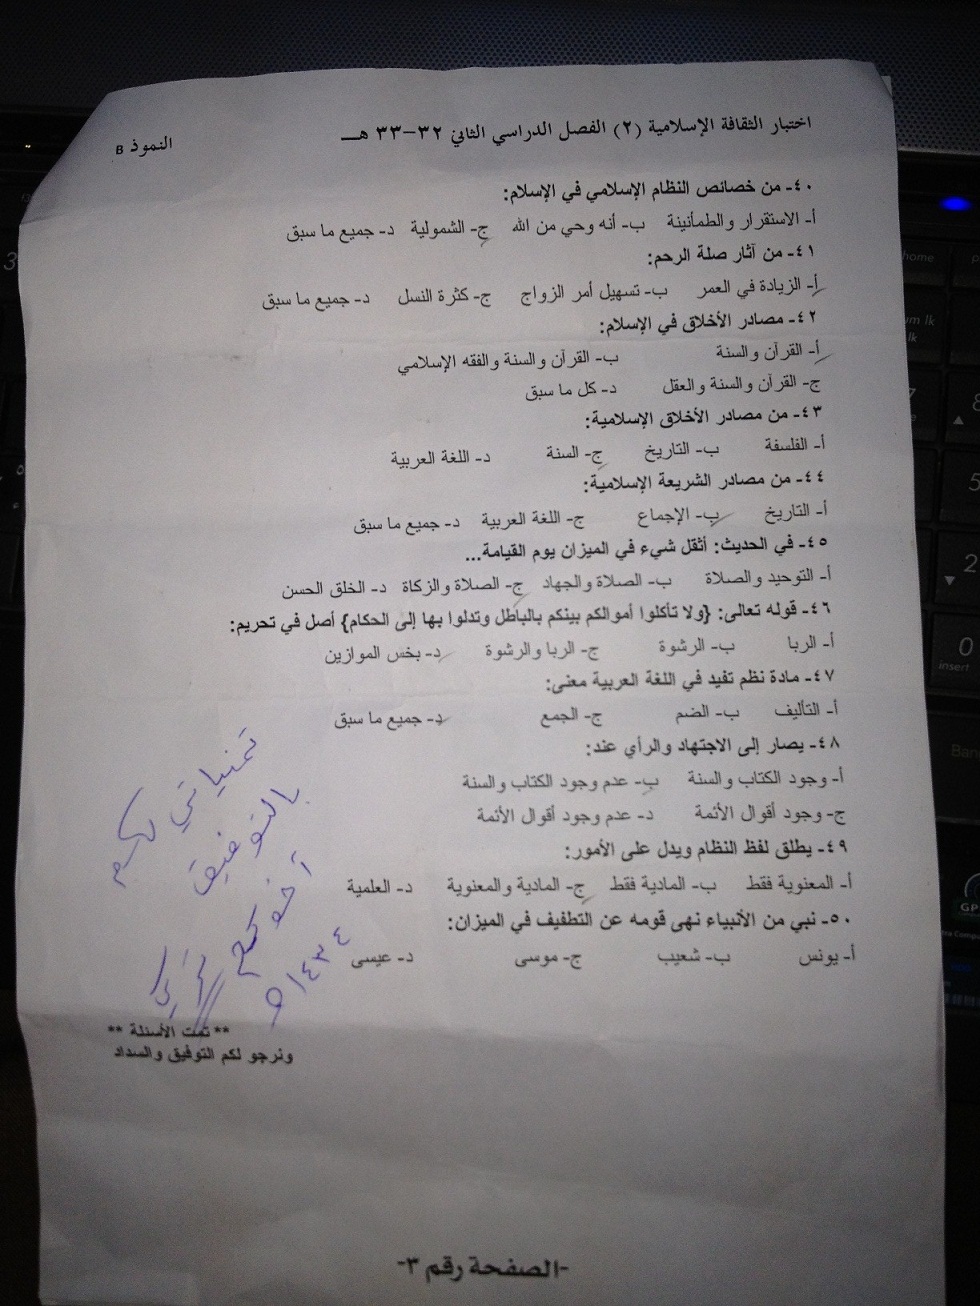 اختبار الثقافة الإسلامية (٢) الفصل الدراسي الثاني ٣٢-٣٣ هـ
النموذ B
٤٠- من خصائص النظام الإسلامي في الإسلام:
أ- الاستقرار والطمأنينة ب- أنه وحي من الله ج- الشمولية د- جميع ما سبق
٤١- من آثار صلة الرحم:
أ- الزيادة في العمر ب- تسهيل أمر الزواج ج- كثرة النسل د- جميع ما سبق
٤٢- مصادر الأخلاق في الإسلام:
أ- القرآن والسنة ب- القرآن والسنة والفقه الإسلامي
ج- القرآن والسنة والعقل د- كل ما سبق
٤٣- من مصادر الأخلاق الإسلامية:
أ- الفلسفة ب- التاريخ ج- السنة د- اللغة العربية
٤٤- من مصادر الشريعة الإسلامية:
أ- التاريخ ب- الإجماع ج- اللغة العربية د- جميع ما سبق
٤٥- في الحديث: أثقل شيء في الميزان يوم القيامة...
أ- التوحيد والصلاة ب- الصلاة والجهاد ج- الصلاة والزكاة د- الخلق الحسن
٤٦- قوله تعالى: {ولا تأكلوا أموالكم بينكم بالباطل وتدلوا بها إلى الحكام} أصل في تحريم:
أ- الربا ب- الرشوة ج- الربا والرشوة د- بخس الموازين
٤٧- مادة نظم تفيد في اللغة العربية معنى:
أ- التأليف ب- الضم ج- الجمع د- جميع ما سبق
٤٨- يصار إلى الاجتهاد والرأي عند:
أ- وجود الكتاب والسنة ب- عدم وجود الكتاب والسنة
ج- وجود أقوال الأئمة د- عدم وجود أقوال الأئمة
٤٩- يطلق لفظ النظام ويدل على الأمور:
أ- المعنوية فقط ب- المادية فقط ج- المادية والمعنوية د- العلمية
٥٠- نبي من الأنبياء نهى قومه عن التطفيف في الميزان:
أ- يونس ب- شعيب ج- موسى د- عيسى
تمنياتي لكم
بالتوفيق
أخوكم
١٤٣٤ه
** تمت الأسئلة **
ونرجو لكم التوفيق والسداد
-الصفحة رقم ٣-
home
insert